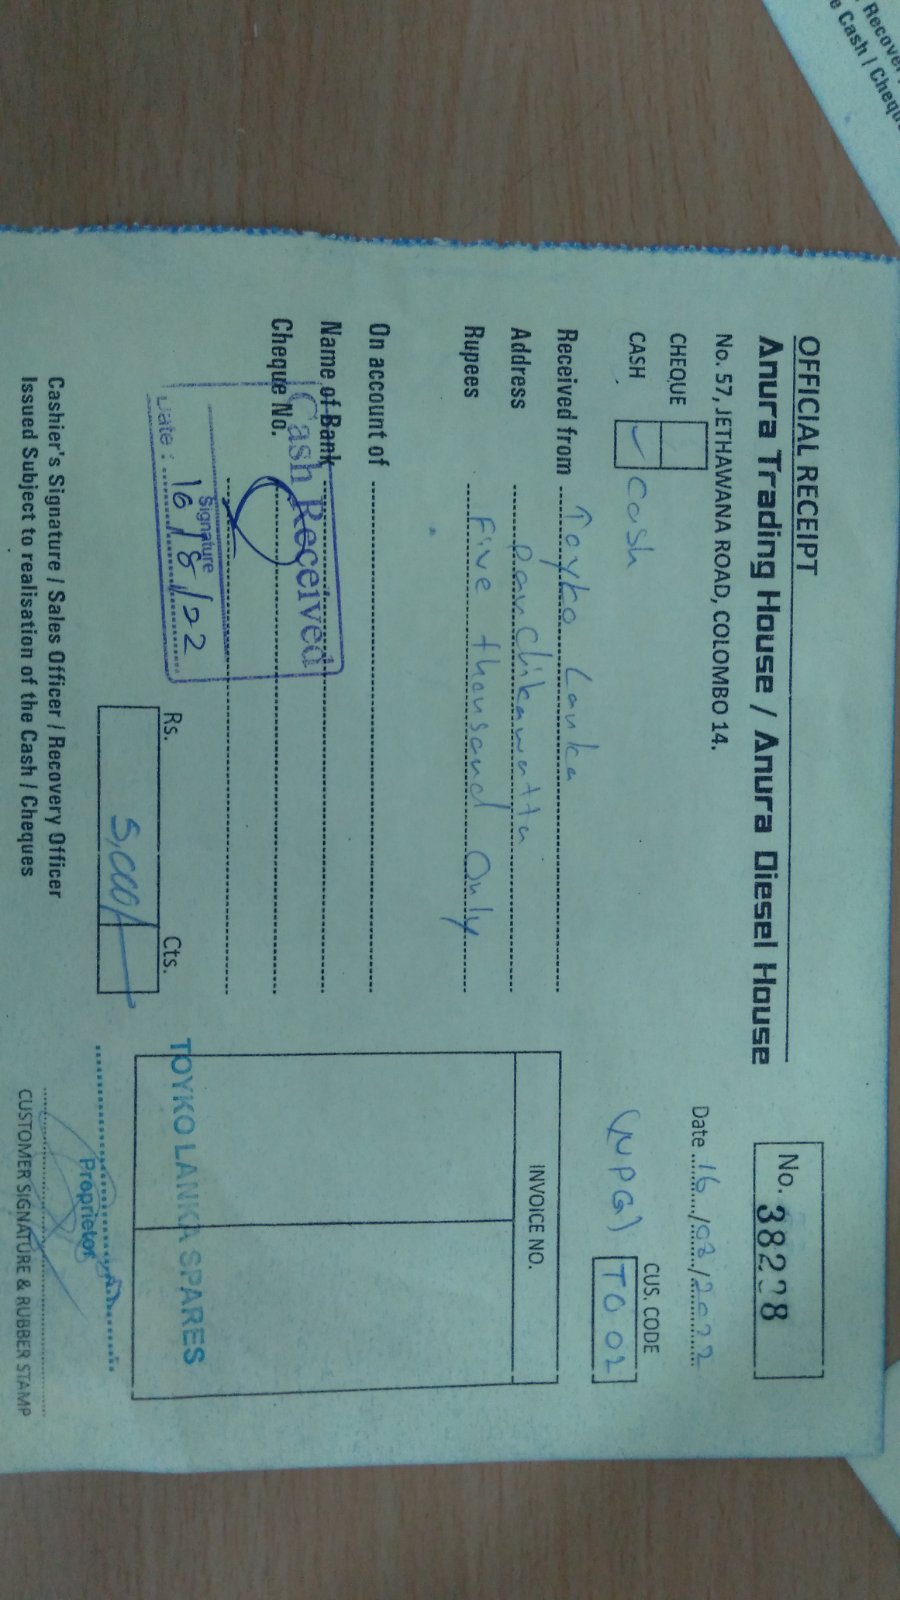 Recover
e Cash / Chequ
OFFICIAL RECEIPT
Anura Trading House / Anura Diesel House
No. 57, JETHAWANA ROAD, COLOMBO 14.
No. 38228
Date 16/08/2022
CHEQUE
CASH ✓ cash
CUS. CODE
(WPG) TO 02
Received from Toyko Lanka
Address panchikawatta
Rupees Five thousand Only
INVOICE NO.
On account of
Name of Bank
Cheque No.
Cash Received
Signature
Date : 16/8/22
Rs. Cts.
5,000/-
TOYKO LANKA SPARES
Proprietor
Cashier's Signature / Sales Officer / Recovery Officer
Issued Subject to realisation of the Cash / Cheques
CUSTOMER SIGNATURE & RUBBER STAMP